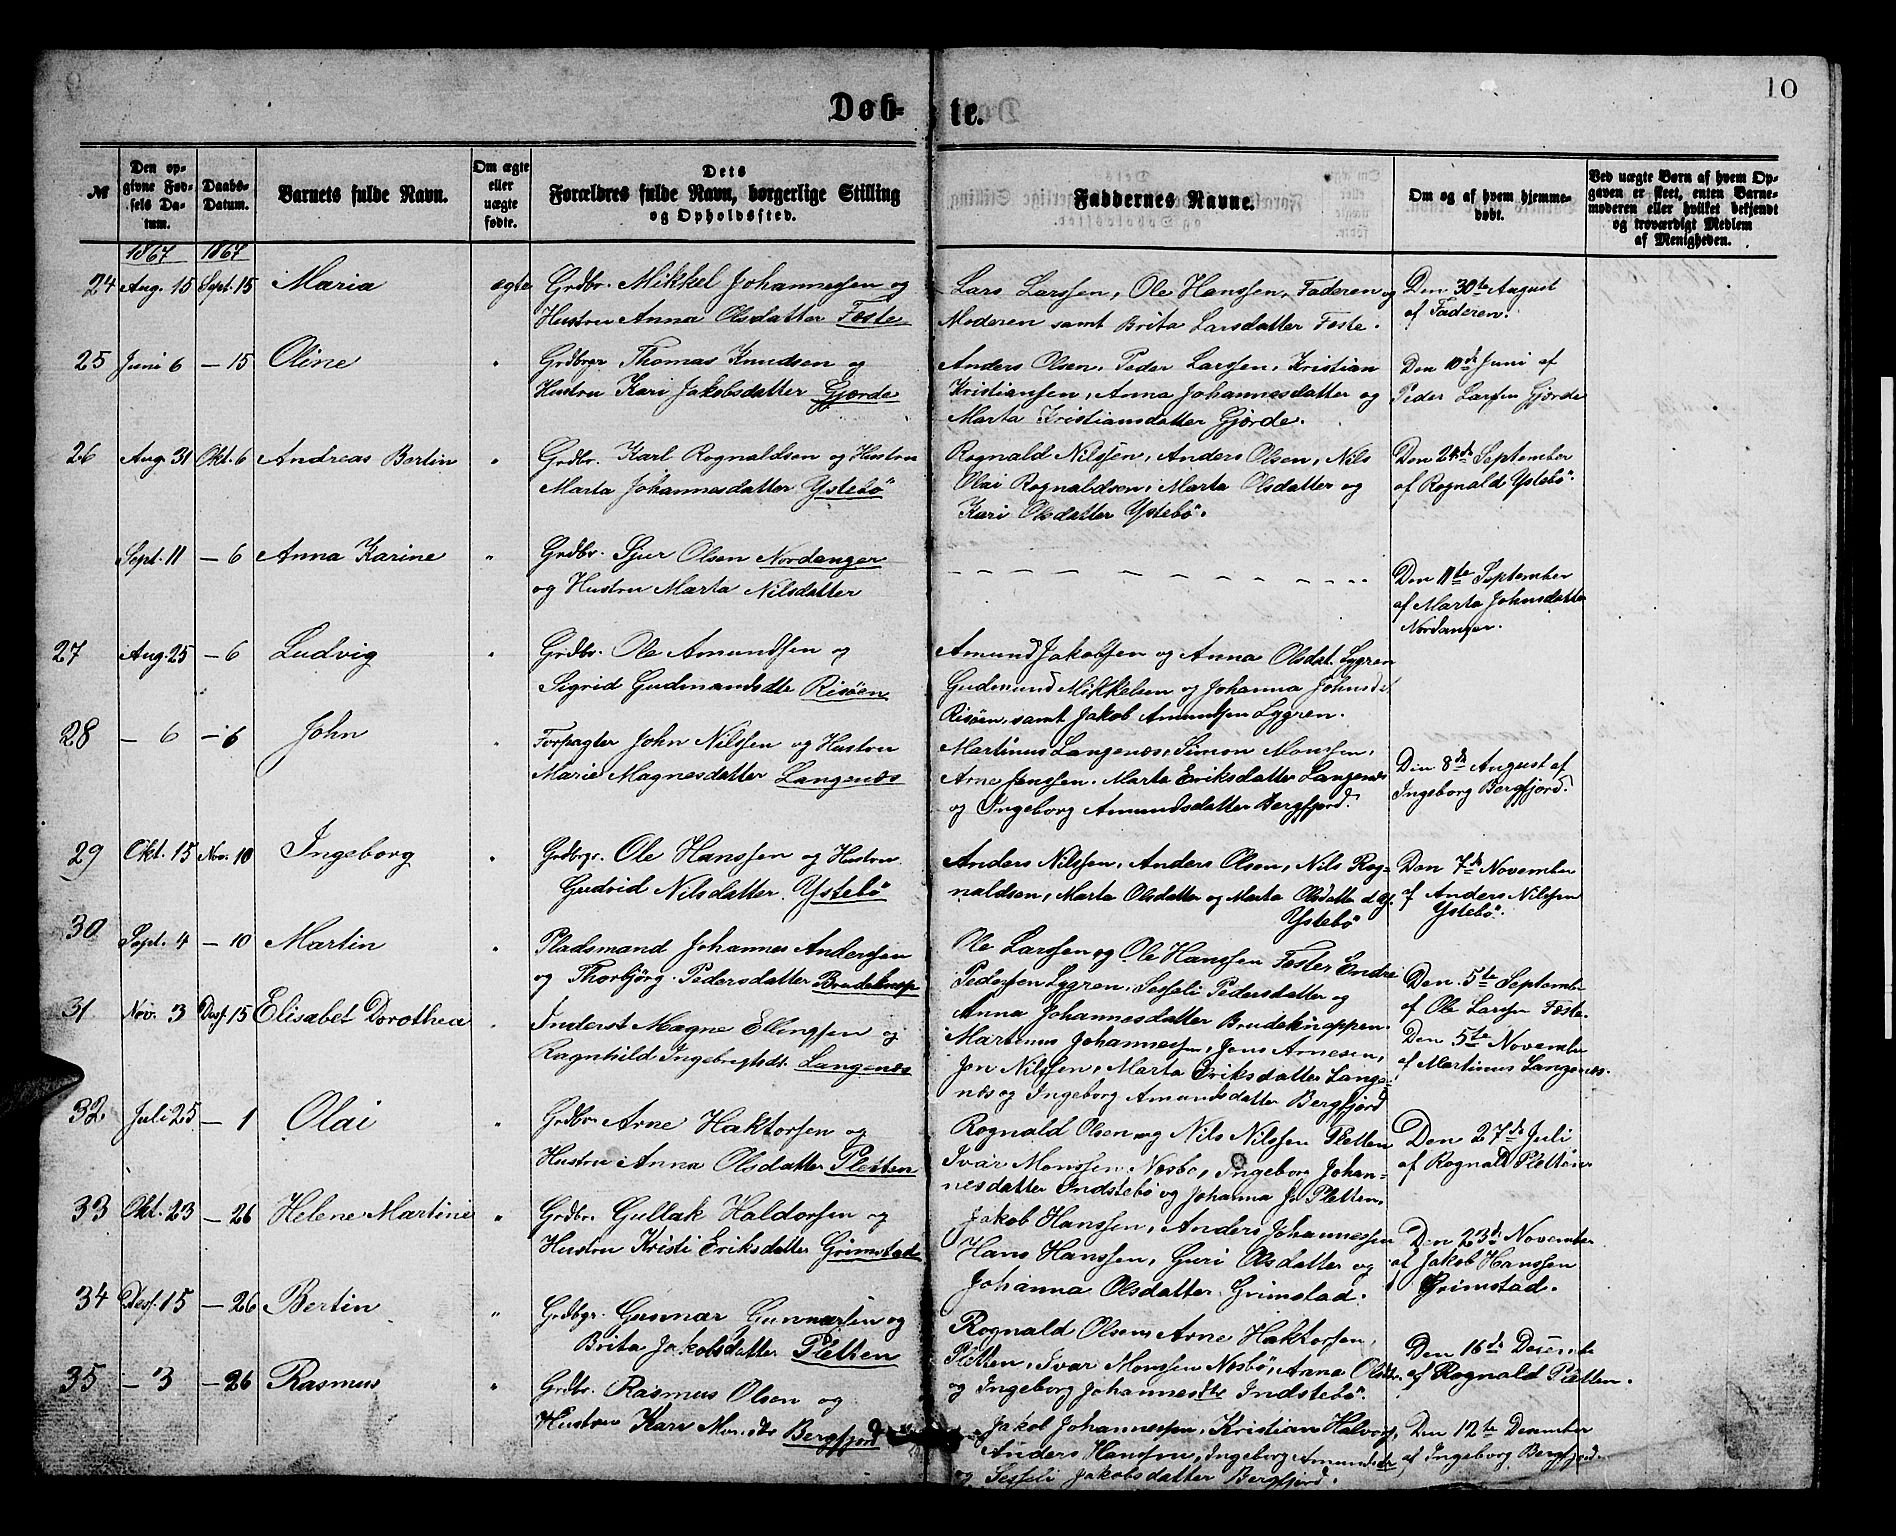 10
Døb-te.
№
Den op-
givne Fød-
sels Da-
tum.
Daabs-
Datum.
Barnets fulde Navn.
Om ægte
eller
uægte
fødte.
Dets
Forældres fulde Navn, borgerlige Stilling
og Opholdssted.
Faddernes Navne.
Om og af hvem hjemme-
døbt.
Ved uægte Børn af hvem Op-
gaven er skeet, enten Barne-
moderen eller hvilket bekjendt
og troværdigt Medlem
af Menigheden.
1867 1867
24 Aug. 15 Sept. 15 Maria ægte Grdbr. Mikkel Johannessen og
Hustru Anna Olsdatter Foste
Lars Larssen, Ole Hanssen, Faderen og
Moderen samt Brita Larsdatter Foste.
Den 30te August
af Faderen.
25 Juni 6 — 15 Oline " Grdbgr Thomas Knudsen og
Hustru Kari Jakobsdatter Gjerde
Anders Olsen, Peder Larssen, Kristian
Kristianssen, Anna Johannesdatter og
Marta Kristiansdatter Gjerde.
Den 10de Juni af
Peder Larssen Gjerde
26 Aug. 31 Okt. 6 Andreas Bertin " Grdbr. Karl Rognaldsen og Hustru
Marta Johannesdatter Ystebö
Rognald Nilssen, Anders Olsen, Nils
Olai Rognaldsen, Marta Olsdatter og
Kari Olsdatter Ystebö.
Den 24de September
af Rognald Ystebö.
Sept. 11 — 6 Anna Karine " Grdbr. Sjur Olsen Nordanger
og Hustru Marta Nilsdatter
— — — — — — — — — —
Den 11te September
af Marta Johnsdatter
Nordanger.
27 Aug. 25 — 6 Ludvig " Grdbr. Ole Amundssen og
Sigrid Gudmandsdtr Risöen
Amund Jakobssen og Anna Olsdat. Lygren
Gudmund Mikkelsen og Johanna Johnsd
Risöen, samt Jakob Amundssen Lygren.
28 — 6 — 6 John " Forpagter John Nilssen og Hustru
Marie Magnesdatter Langenæs
Martinus Langenæs, Simon Monssen,
Arne Jenssen, Marta Eriksdatter Langenæs
og Ingeborg Amundsdatter Bergfjord.
Den 8de August af
Ingeborg Bergfjord.
29 Okt. 15 Nov. 10 Ingeborg " Grdbgr. Ole Hanssen og Hustru
Gudvid Nilsdatter Ystebö
Anders Nilssen, Anders Olsen, Nils Rog-
naldsen, Marta Olsdatter og Marta Olsdatter d.y.
Ystebö
Den 7de November
af Anders Nilssen
Ystebö.
30 Sept. 4 — 10 Martin " Pladsmand Johannes Anderssen
og Thorbjörg Pedersdatter
Ole Larssen og Ole Hanssen Foste, Endre
Pederssen Lygren, Sesseli Pedersdatter og
Anna Johannesdatter Brudeknappen.
Den 5te September
af Ole Larssen Foste.
31 Nov. 3 Desf. 15 Elisabet Dorothea " Inderst Magne Ellingssen og
Ragnhild Ingebregtsdt. Langenæs
Martinus Johannessen, Jens Arnesen,
Jon Nilssen, Marta Eriksdatter Lange-
næs og Ingeborg Amundsdatter Bergfjord
Den 5te Novembe
af Martinus Langenæs.
32 Juli 25 — 1 Olai " Grdbr. Arne Haktorssen og
Hustru Anna Olsdatter Pletten
Rognald Olsen og Nils Nilssen Pletten
Ivar Monssen Næsbø, Ingeborg Johan-
nesdatter Indstebö og Johanna Pletten.
Den 27de Juli
af Rognald Pletten
33 Okt. 23 — 26 Helene Martine " Grdbr. Gullak Haldorssen og
Hustru Kristi Eriksdatter Grimstad
Jakob Hanssen, Anders Johannessen
Hans Hanssen, Guri Olsdatter og
Johanna Olsdatter Grimstad.
Den 23de November
af Jakob Hanssen
Grimstad.
34 Desf. 15 — 26 Bertin " Grdbgr. Gunnar Gunnarssen og
Brita Jakobsdatter Pletten
Rognald Olsen, Arne Haktorssen,
Pletten, Ivar Monssen Næsbö, Anna Olsdtr.
og Ingeborg Johannesdtr Indstebö.
Den 16de Desembe
af Rognald Pletten.
35 — 3 — 26 Rasmus " Grdbr. Rasmus Olsen og
Hustru Kari Monsdtr Bergfjord
Jakob Johannessen, Kristian Halvors.
Anders Hanssen, Ingeborg Amundsdtr
og Sesseli Jakobsdatter Bergfjord.
Den 12te Desember
af Ingeborg Bergfjord.